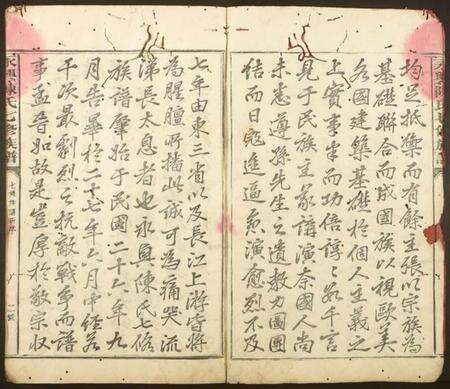 均足抵禦而有餘主張以宗族為
基礎聯合而成國族以視歐美
各國建築基礎於個人主義之
上實事半而功倍諄諄數千言
見于民族主義講演奈國人尚
未悉遵孫先生之遺教力圖團
結而日寇進逼愈演愈烈不及
七年由東三省以及長江上游皆將
為腥膻所播此誠可為痛哭流
涕長大息者也永興陳氏七修
族譜肇始于民國二十六年九
月告畢於二十七年六月中經若
干次最劇烈之抗敵戰事而譜
事孟晋如故是豈厚於敬宗收
永興陳氏七修族譜